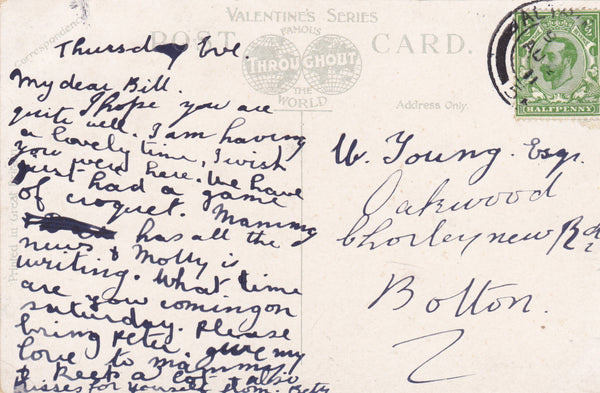 VALENTINE'S SERIES
FAMOUS
THROUGHOUT
THE WORLD
POST CARD.
Correspondence
Address Only.
HALFPENNY
AU
11
Printed in Great
Thursday Eve.
My dear Bill.
I hope you are
quite well. I am having
a lovely time, I wish
you were here. We have
just had a game
of croquet. Mammy
has all the
news & Molly is
writing. What time
are you coming on
saturday. Please
bring Peter. give my
love to mammy
& Keep a lot also
Kisses for yourself from. Betty
W. Young. Esq.
Oakwood
Chorley new Rd
Bolton.